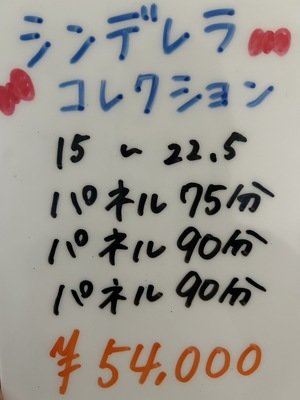 シンデレラ
コレクション
15 ~ 22.5
パネル 75分
パネル 90分
パネル 90分
¥54,000